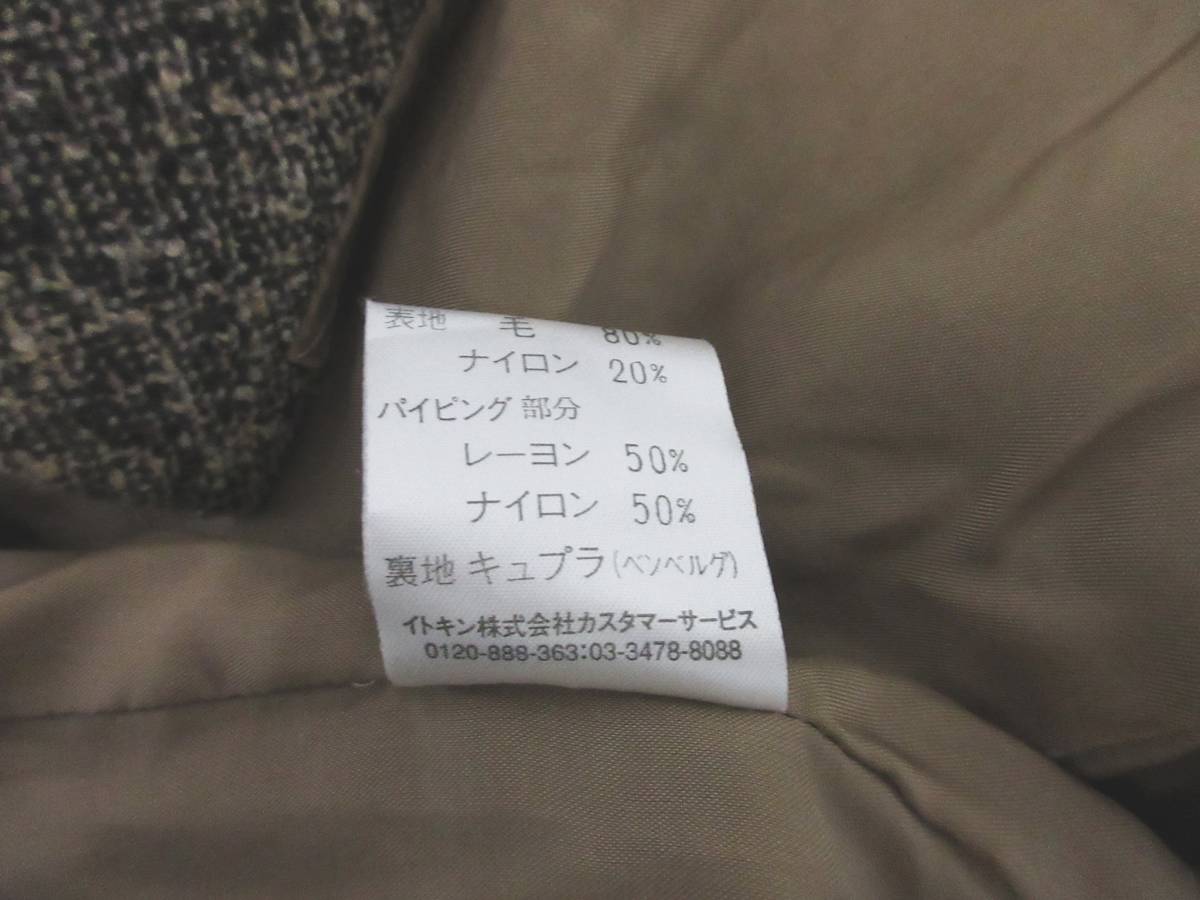 表地 毛 80%
ナイロン 20%
パイピング 部分
レーヨン 50%
ナイロン 50%
裏地 キュプラ(ベンベルグ)
イトキン株式会社カスタマーサービス
0120-888-363:03-3478-8088